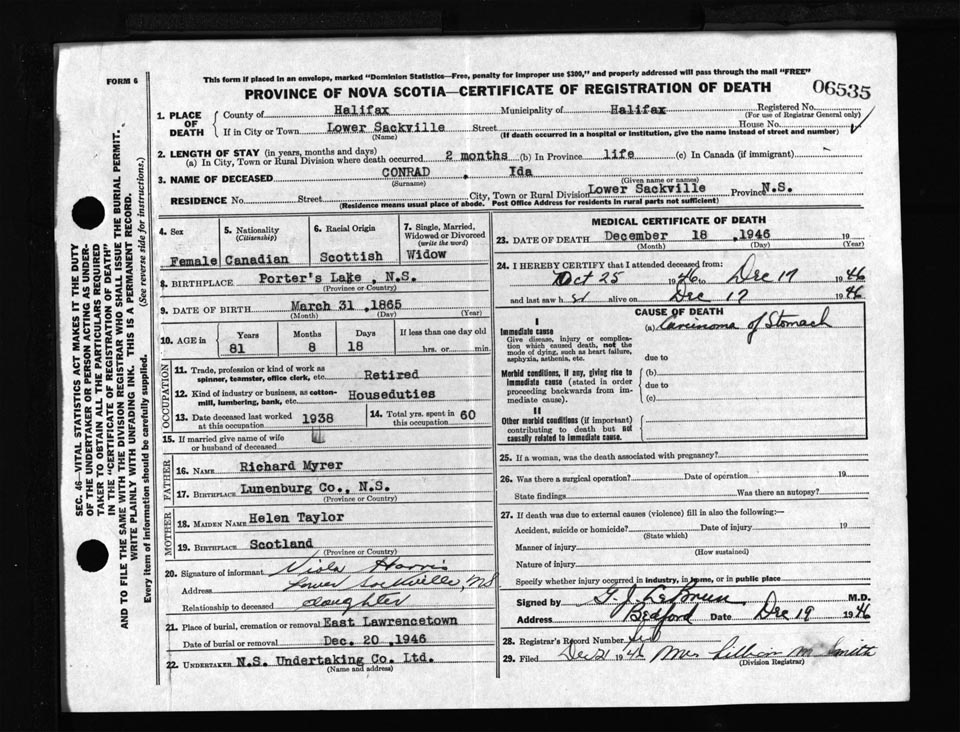 FORM 6
This form if placed in an envelope, marked "Dominion Statistics—Free, penalty for improper use $300," and properly addressed will pass through the mail "FREE"
PROVINCE OF NOVA SCOTIA—CERTIFICATE OF REGISTRATION OF DEATH
06535
1. PLACE OF DEATH
County of Halifax Municipality of Halifax Registered No.
(For use of Registrar General only)
If in City or Town Lower Sackville Street House No.
(Name) (If death occurred in a hospital or institution, give the name instead of street and number)
2. LENGTH OF STAY (in years, months and days)
(a) In City, Town or Rural Division where death occurred 2 months (b) In Province life (c) In Canada (if immigrant)
3. NAME OF DECEASED CONRAD , Ida
(Surname) (Given name or names)
RESIDENCE No. Street City, Town or Rural Division Lower Sackville Province N.S.
(Residence means usual place of abode. Post Office Address for residents in rural parts not sufficient)
4. Sex
Female
5. Nationality
(Citizenship)
Canadian
6. Racial Origin
Scottish
7. Single, Married, Widowed or Divorced
(write the word)
Widow
8. BIRTHPLACE Porter's Lake , N.S.
(Province or Country)
9. DATE OF BIRTH March 31 ,1865
(Month) (Day) (Year)
10. AGE in Years Months Days If less than one day old
81 8 18 hrs. or min.
OCCUPATION
11. Trade, profession or kind of work as
spinner, teamster, office clerk, etc. Retired
12. Kind of industry or business, as cotton-
mill, lumbering, bank, etc. Houseduties
13. Date deceased last worked
at this occupation 1938
14. Total yrs. spent in
this occupation 60
15. If married give name of wife
or husband of deceased
FATHER
16. NAME Richard Myrer
17. BIRTHPLACE Lunenburg Co., N.S.
(Province or Country)
MOTHER
18. MAIDEN NAME Helen Taylor
19. BIRTHPLACE Scotland
(Province or Country)
20. Signature of informant Viola Harris
Address Lower Sackville, N.S
Relationship to deceased daughter
21. Place of burial, cremation or removal East Lawrencetown
Date of burial or removal Dec. 20 ,1946
22. UNDERTAKER N.S. Undertaking Co. Ltd.
(Name and address)
MEDICAL CERTIFICATE OF DEATH
23. DATE OF DEATH December 18 ,1946 19
(Month) (Day) (Year)
24. I HEREBY CERTIFY that I attended deceased from:
Oct 25 1946 to Dec 17 1946
and last saw h er alive on Dec 17 1946
CAUSE OF DEATH
I
Immediate cause
Give disease, injury or complica-
tion which caused death, not the
mode of dying, such as heart failure,
asphyxia, asthenia, etc.
(a) Carcinoma of Stomach
due to
Morbid conditions, if any, giving rise to
immediate cause (stated in order
proceeding backwards from im-
mediate cause).
(b)
due to
(c)
II
Other morbid conditions (if important)
contributing to death but not
causally related to immediate cause.
25. If a woman, was the death associated with pregnancy?
26. Was there a surgical operation? Date of operation 19
State findings Was there an autopsy?
27. If death was due to external causes (violence) fill in also the following:—
Accident, suicide or homicide? Date of injury 19
(State which)
Manner of injury
(How sustained)
Nature of injury
Specify whether injury occurred in industry, in home, or in public place
Signed by T. J. LeBrun M.D.
Address Bedford Date Dec 19 1946
28. Registrar's Record Number
29. Filed Dec 21 1946 Mrs Lillian M Smith
(Division Registrar)
SEC. 46—VITAL STATISTICS ACT MAKES IT THE DUTY
OF THE UNDERTAKER OR PERSON ACTING AS UNDER-
TAKER TO OBTAIN ALL THE PARTICULARS REQUIRED
IN THE "CERTIFICATE OF REGISTRATION OF DEATH"
AND TO FILE THE SAME WITH THE DIVISION REGISTRAR WHO SHALL ISSUE THE BURIAL PERMIT.
WRITE PLAINLY WITH UNFADING INK. THIS IS A PERMANENT RECORD.
Every item of information should be carefully supplied. (See reverse side for instructions.)